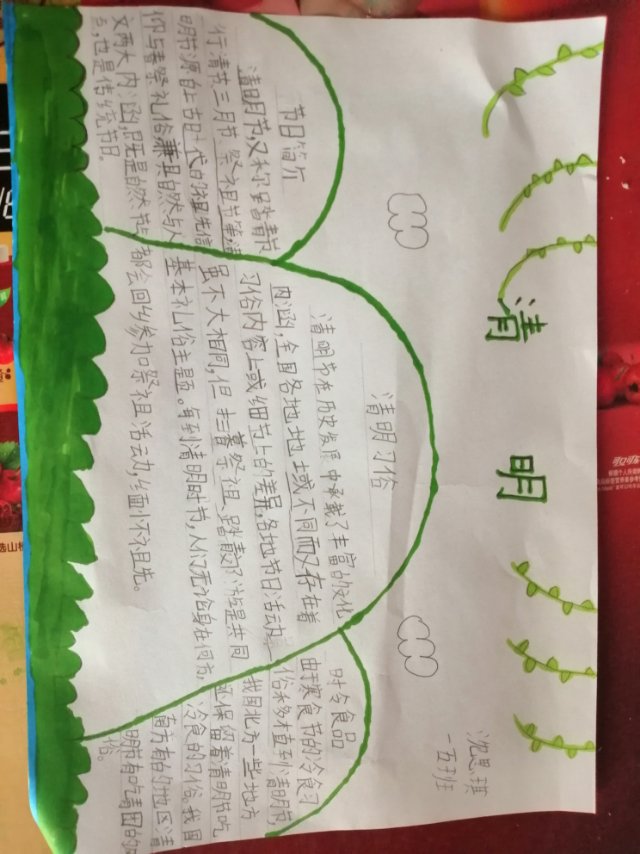 清 明
沈思琪
一五班
节日简介
清明节,又称踏青节
行清节三月节 祭祖节等,清
明节源自上古时代的祖先信
仰与春祭礼俗兼具自然与人
文两大内涵,既是自然节
点,也是传统节日。
清明习俗
清明节在历史发展中承载了丰富的文化
内涵,全国各地地域不同而又存在着
习俗内容上或细节上的差异,各地节日活动
虽不大相同,但扫墓祭祖、踏青郊游是共同
基本礼俗主题。每到清明时节,人们无论身在何方,
都会回乡参加祭祖活动,缅怀祖先。
时令食品
由于寒食节的冷食习
俗移植到清明节,
我国北方一些地方
还保留着清明节吃
冷食的习俗。我国
南方有的地区清
明节有吃青团的
俗。
可口可乐